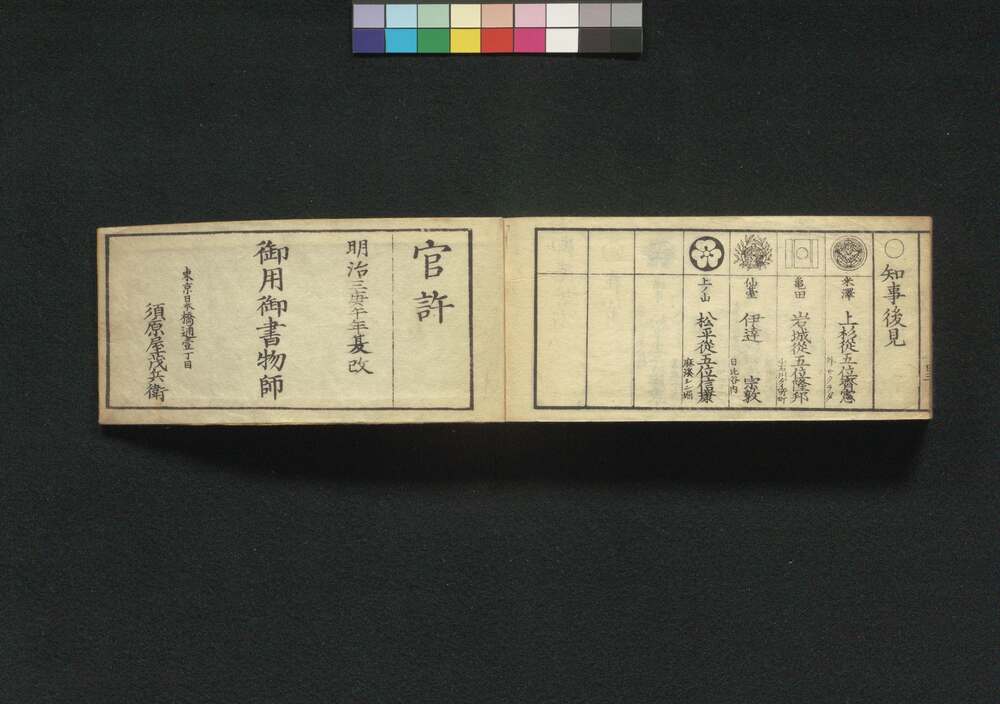 ○知事後見
米澤 上杉從五位齊憲
外サクラダ
亀田 岩城從五位隆邦
仙臺 伊達 宗敦
日比谷内
上ノ山 松平從五位信庸
官許
明治三庚午年夏改
御用御書物師
東京日本橋通壹丁目
須原屋茂兵衛